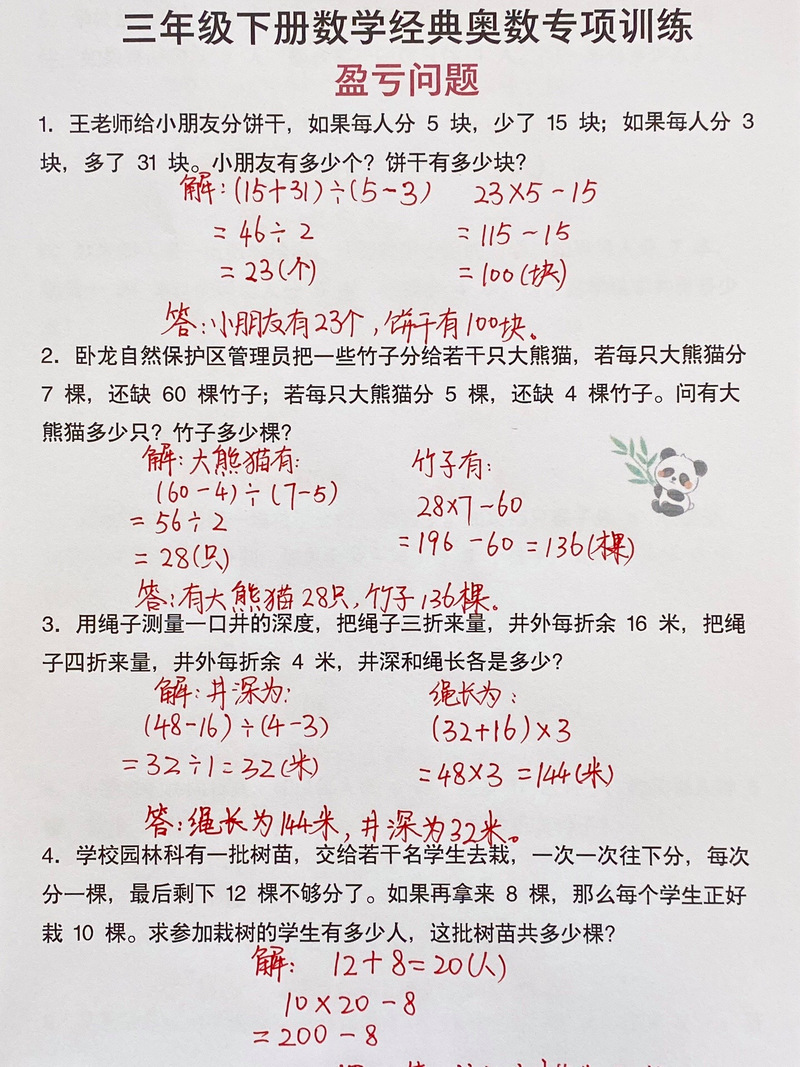 三年级下册数学经典奥数专项训练
盈亏问题
1. 王老师给小朋友分饼干，如果每人分 5 块，少了 15 块；如果每人分 3
块，多了 31 块。小朋友有多少个？饼干有多少块？
解：(15+31)÷(5-3) 23×5-15
=46÷2 =115-15
=23(个) =100(块)
答：小朋友有23个，饼干有100块。
2. 卧龙自然保护区管理员把一些竹子分给若干只大熊猫，若每只大熊猫分
7 棵，还缺 60 棵竹子；若每只大熊猫分 5 棵，还缺 4 棵竹子。问有大
熊猫多少只？竹子多少棵？
解：大熊猫有： 竹子有：
(60-4)÷(7-5) 28×7-60
=56÷2 =196-60=136(棵)
=28(只)
答：有大熊猫28只，竹子136棵。
3. 用绳子测量一口井的深度，把绳子三折来量，井外每折余 16 米，把绳
子四折来量，井外每折余 4 米，井深和绳长各是多少？
解：井深为： 绳长为：
(48-16)÷(4-3) (32+16)×3
=32÷1=32(米) =48×3=144(米)
答：绳长为144米，井深为32米。
4. 学校园林科有一批树苗，交给若干名学生去栽，一次一次往下分，每次
分一棵，最后剩下 12 棵不够分了。如果再拿来 8 棵，那么每个学生正好
栽 10 棵。求参加栽树的学生有多少人，这批树苗共多少棵？
解： 12+8=20(人)
10×20-8
=200-8